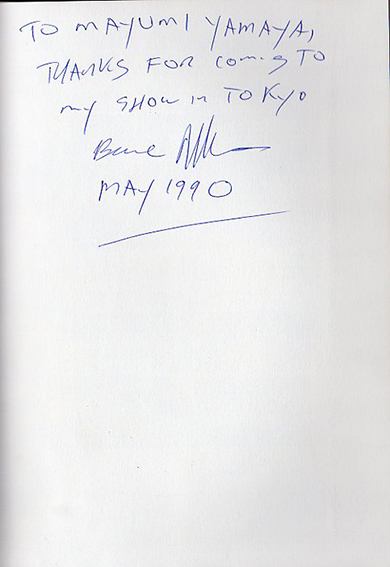 TO MAYUMI YAMAYA,
THANKS FOR COMING TO
MY SHOW IN TOKYO
MAY 1990